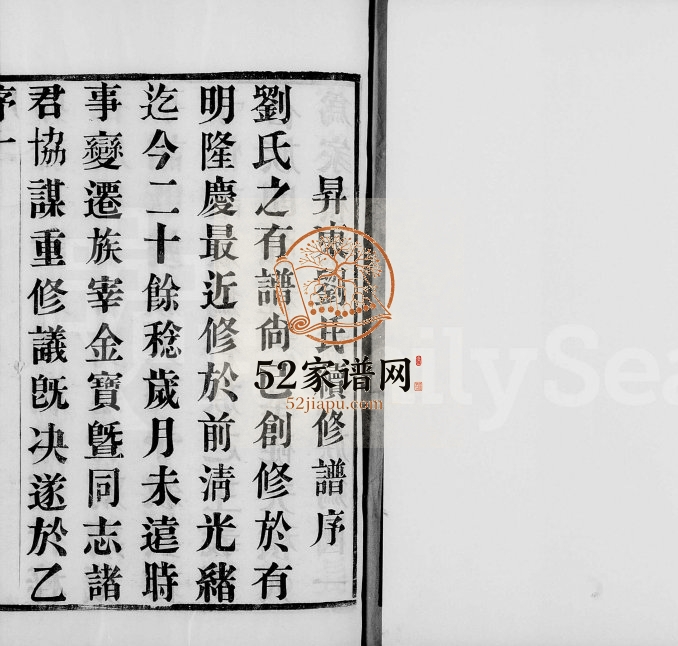 昇東劉氏續修譜序
劉氏之有譜尚已創修於有
明隆慶最近修於前清光緒
迄今二十餘稔歲月未遠時
事變遷族宰金寶曁同志諸
君協謀重修議旣决遂於乙
序一
52家谱网
52jiapu.com